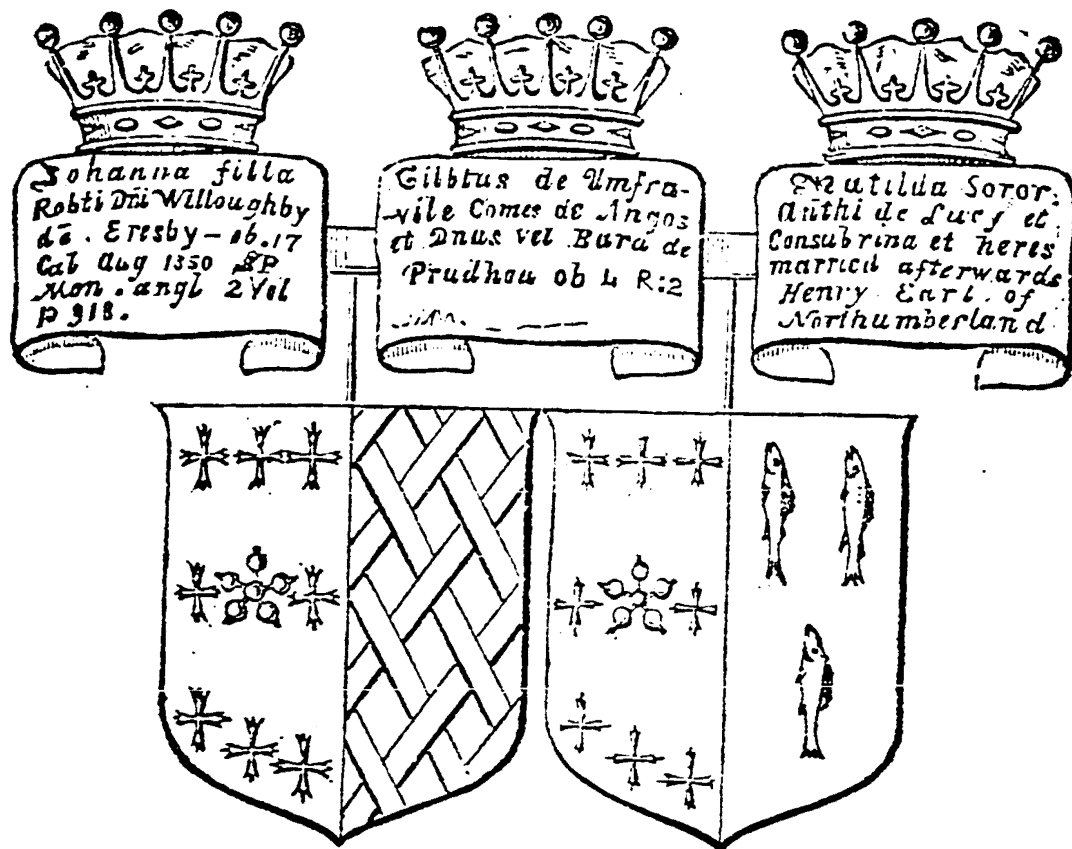 Johanna filia
Robti Dñi Willoughby
de . Eresby – ob. 17
Cal Aug 1350 SP
Mon . angl 2 Vol
p 918 .
Gilbtus de Umfra-
-vile Comes de Angos
et Dnus vel Baro de
Prudhou ob 4 R:2
Matilda Soror.
Anthi de Lucy et
Consubrina et heres
married afterwards
Henry Earl . of
Northumberland